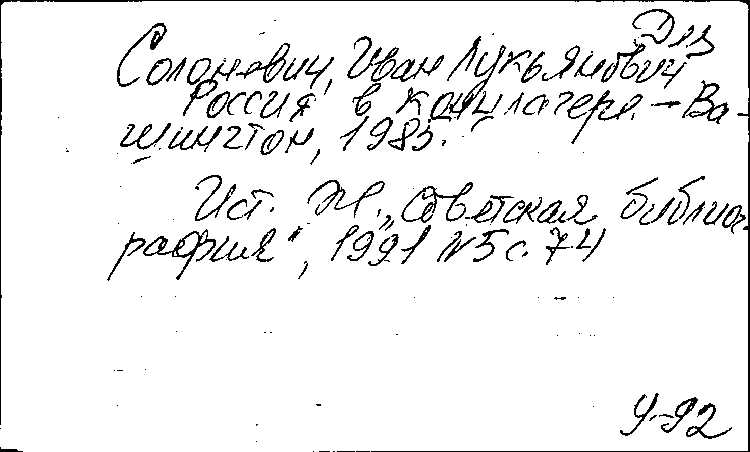 Д113
Солоневич, Иван Лукьянович
Россия в концлагере. – Ва-
шингтон, 1983.
Ист. Ж. „Советская библиог-
рафия", 1991 №5 с. 74
У-92